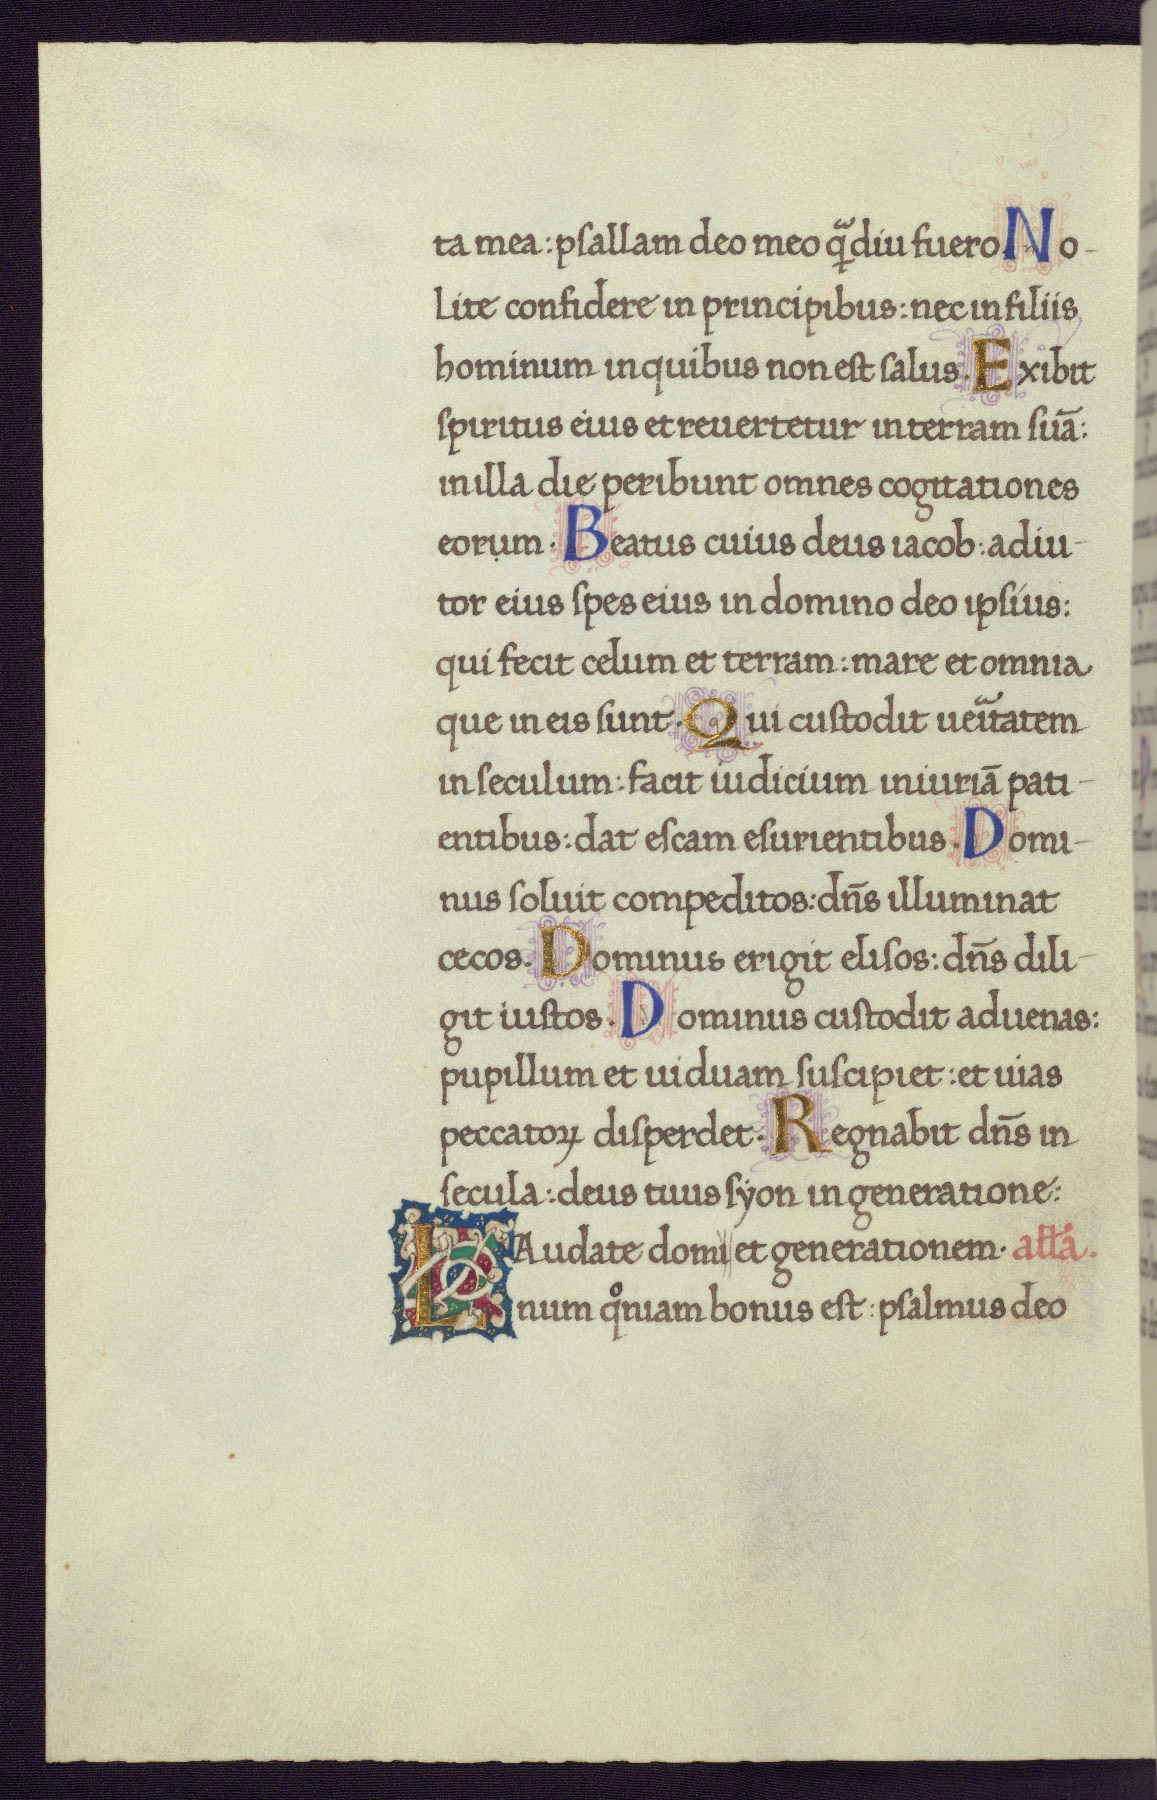 ta mea : psallam deo meo qᷓdiu fuero. No-
lite confidere in principibus : nec in filiis
hominum in quibus non est salus. Exibit
spiritus eius et reuertetur in terram suā :
in illa die peribunt omnes cogitationes
eorum. Beatus cuius deus iacob : adiu-
tor eius spes eius in domino deo ipsius :
qui fecit celum et terram : mare et omnia
que in eis sunt. Qui custodit ueritatem
in seculum : facit iudicium iniuriā pati-
entibus : dat escam esurientibus. Domi-
nus soluit compeditos : dn̄s illuminat
cecos. Dominus erigit elisos : dn̄s dili-
git iustos. Dominus custodit aduenas :
pupillum et uiduam suscipiet : et uias
peccatoꝝ disperdet. Regnabit dn̄s in
secula : deus tuus syon in generatione :
LAudate domi|| et generationem. all'a.
num qͦniam bonus est : psalmus deo